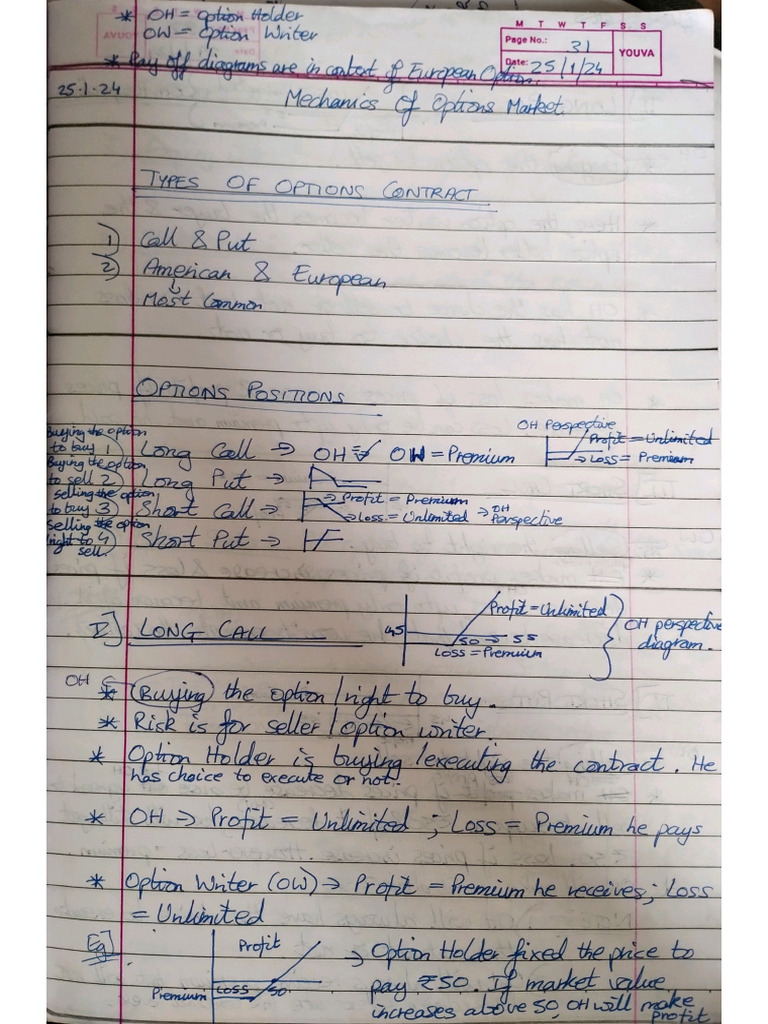 * OH = Option Holder
OW = Option Writer
* Pay off diagrams are in context of European Option.
M T W T F S S
Page No.: 31
YOUVA
Date: 25/1/24
25.1.24
Mechanics Of Options Market.
TYPES OF OPTIONS CONTRACT
1) Call & Put
2) American & European
↓
Most Common
OPTIONS POSITIONS
OH Perspective
Buying the option to buy 1) Long Call → OH OW = Premium
Profit = Unlimited
→ Loss = Premium
Buying the option to sell 2) Long Put →
selling the option to buy 3) Short Call →
→ Profit = Premium
Loss = Unlimited → OH Perspective
Selling the option right to sell. 4) Short Put →
I] LONG CALL
Profit = Unlimited
45
50 → 55
Loss = Premium
OH perspective diagram.
OH
* Buying the option / right to buy.
* Risk is for seller / option writer.
* Option Holder is buying / executing the contract. He
has choice to execute or not.
* OH → Profit = Unlimited ; Loss = Premium he pays
* Option Writer (OW) → Profit = Premium he receives; Loss
= Unlimited
Eg]
Profit
Loss 50
Premium
→ Option Holder fixed the price to
pay ₹50. If market value
increases above 50, OH will make
profit.